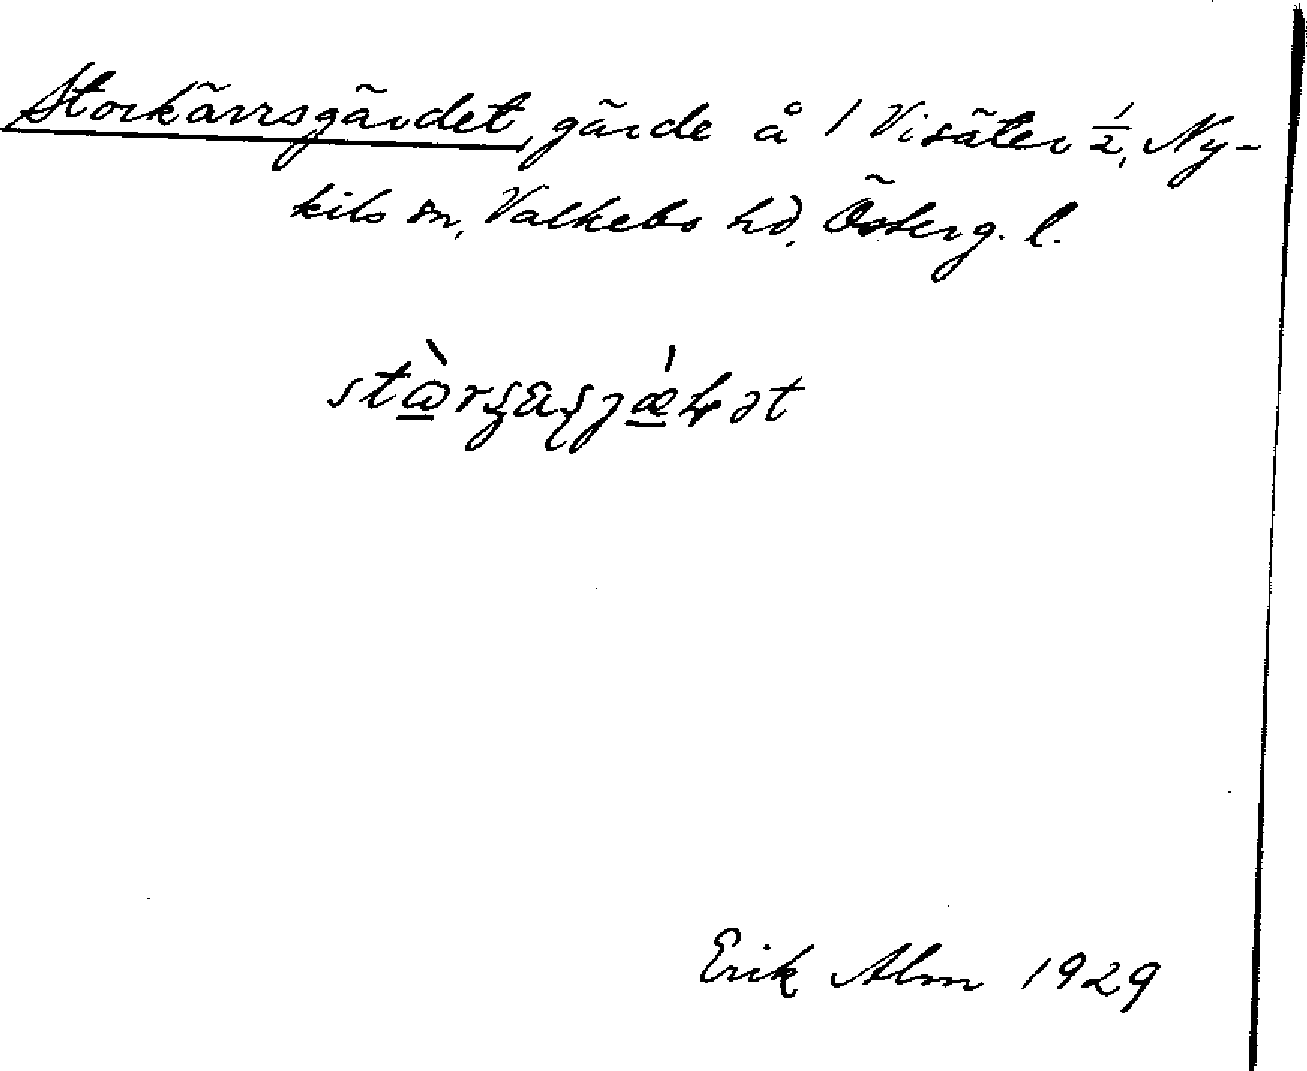 Storkärrsgärdet, gärde å 1 Visäter ½, Ny-
kils sn, Valkebo hd, Österg. l.
Erik Alm 1929